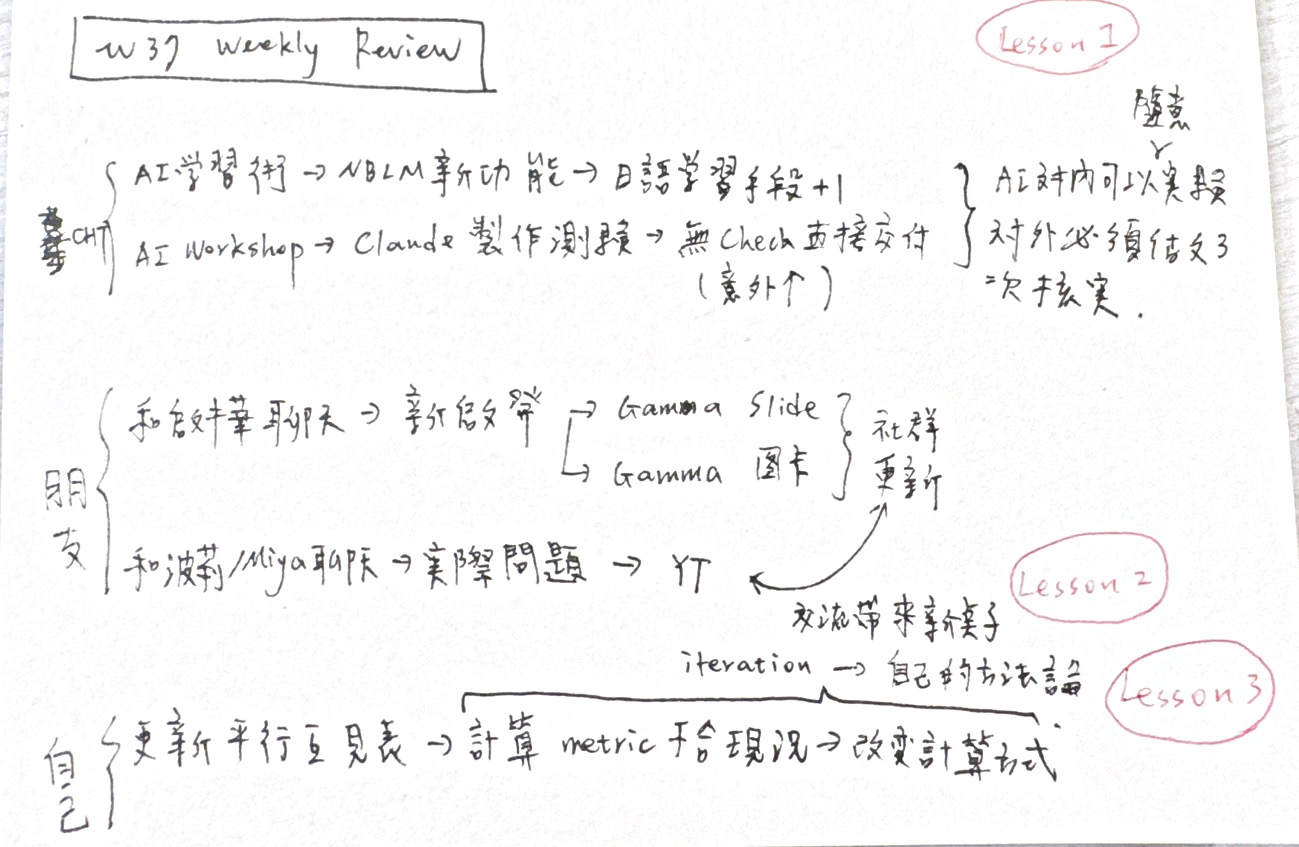 W37 Weekly Review
Lesson 1
隨意
CHT
AI学習術→NBLM新功能→日語学習手段+1
AI Workshop→Claude製作測驗→無Check直接交付
(意外↑)
AI対内可以実驗
対外必須
二次核実.
朋友
和啟華聊天→新啟発
→Gamma Slide
→Gamma 図卡
社群
更新
和波莉/Miya聊天→実際問題→YT
Lesson 2
交流帯来新模子
iteration→自己的方法論
Lesson 3
自己
更新平行互見表→計算metric不合現況→改变計算方式